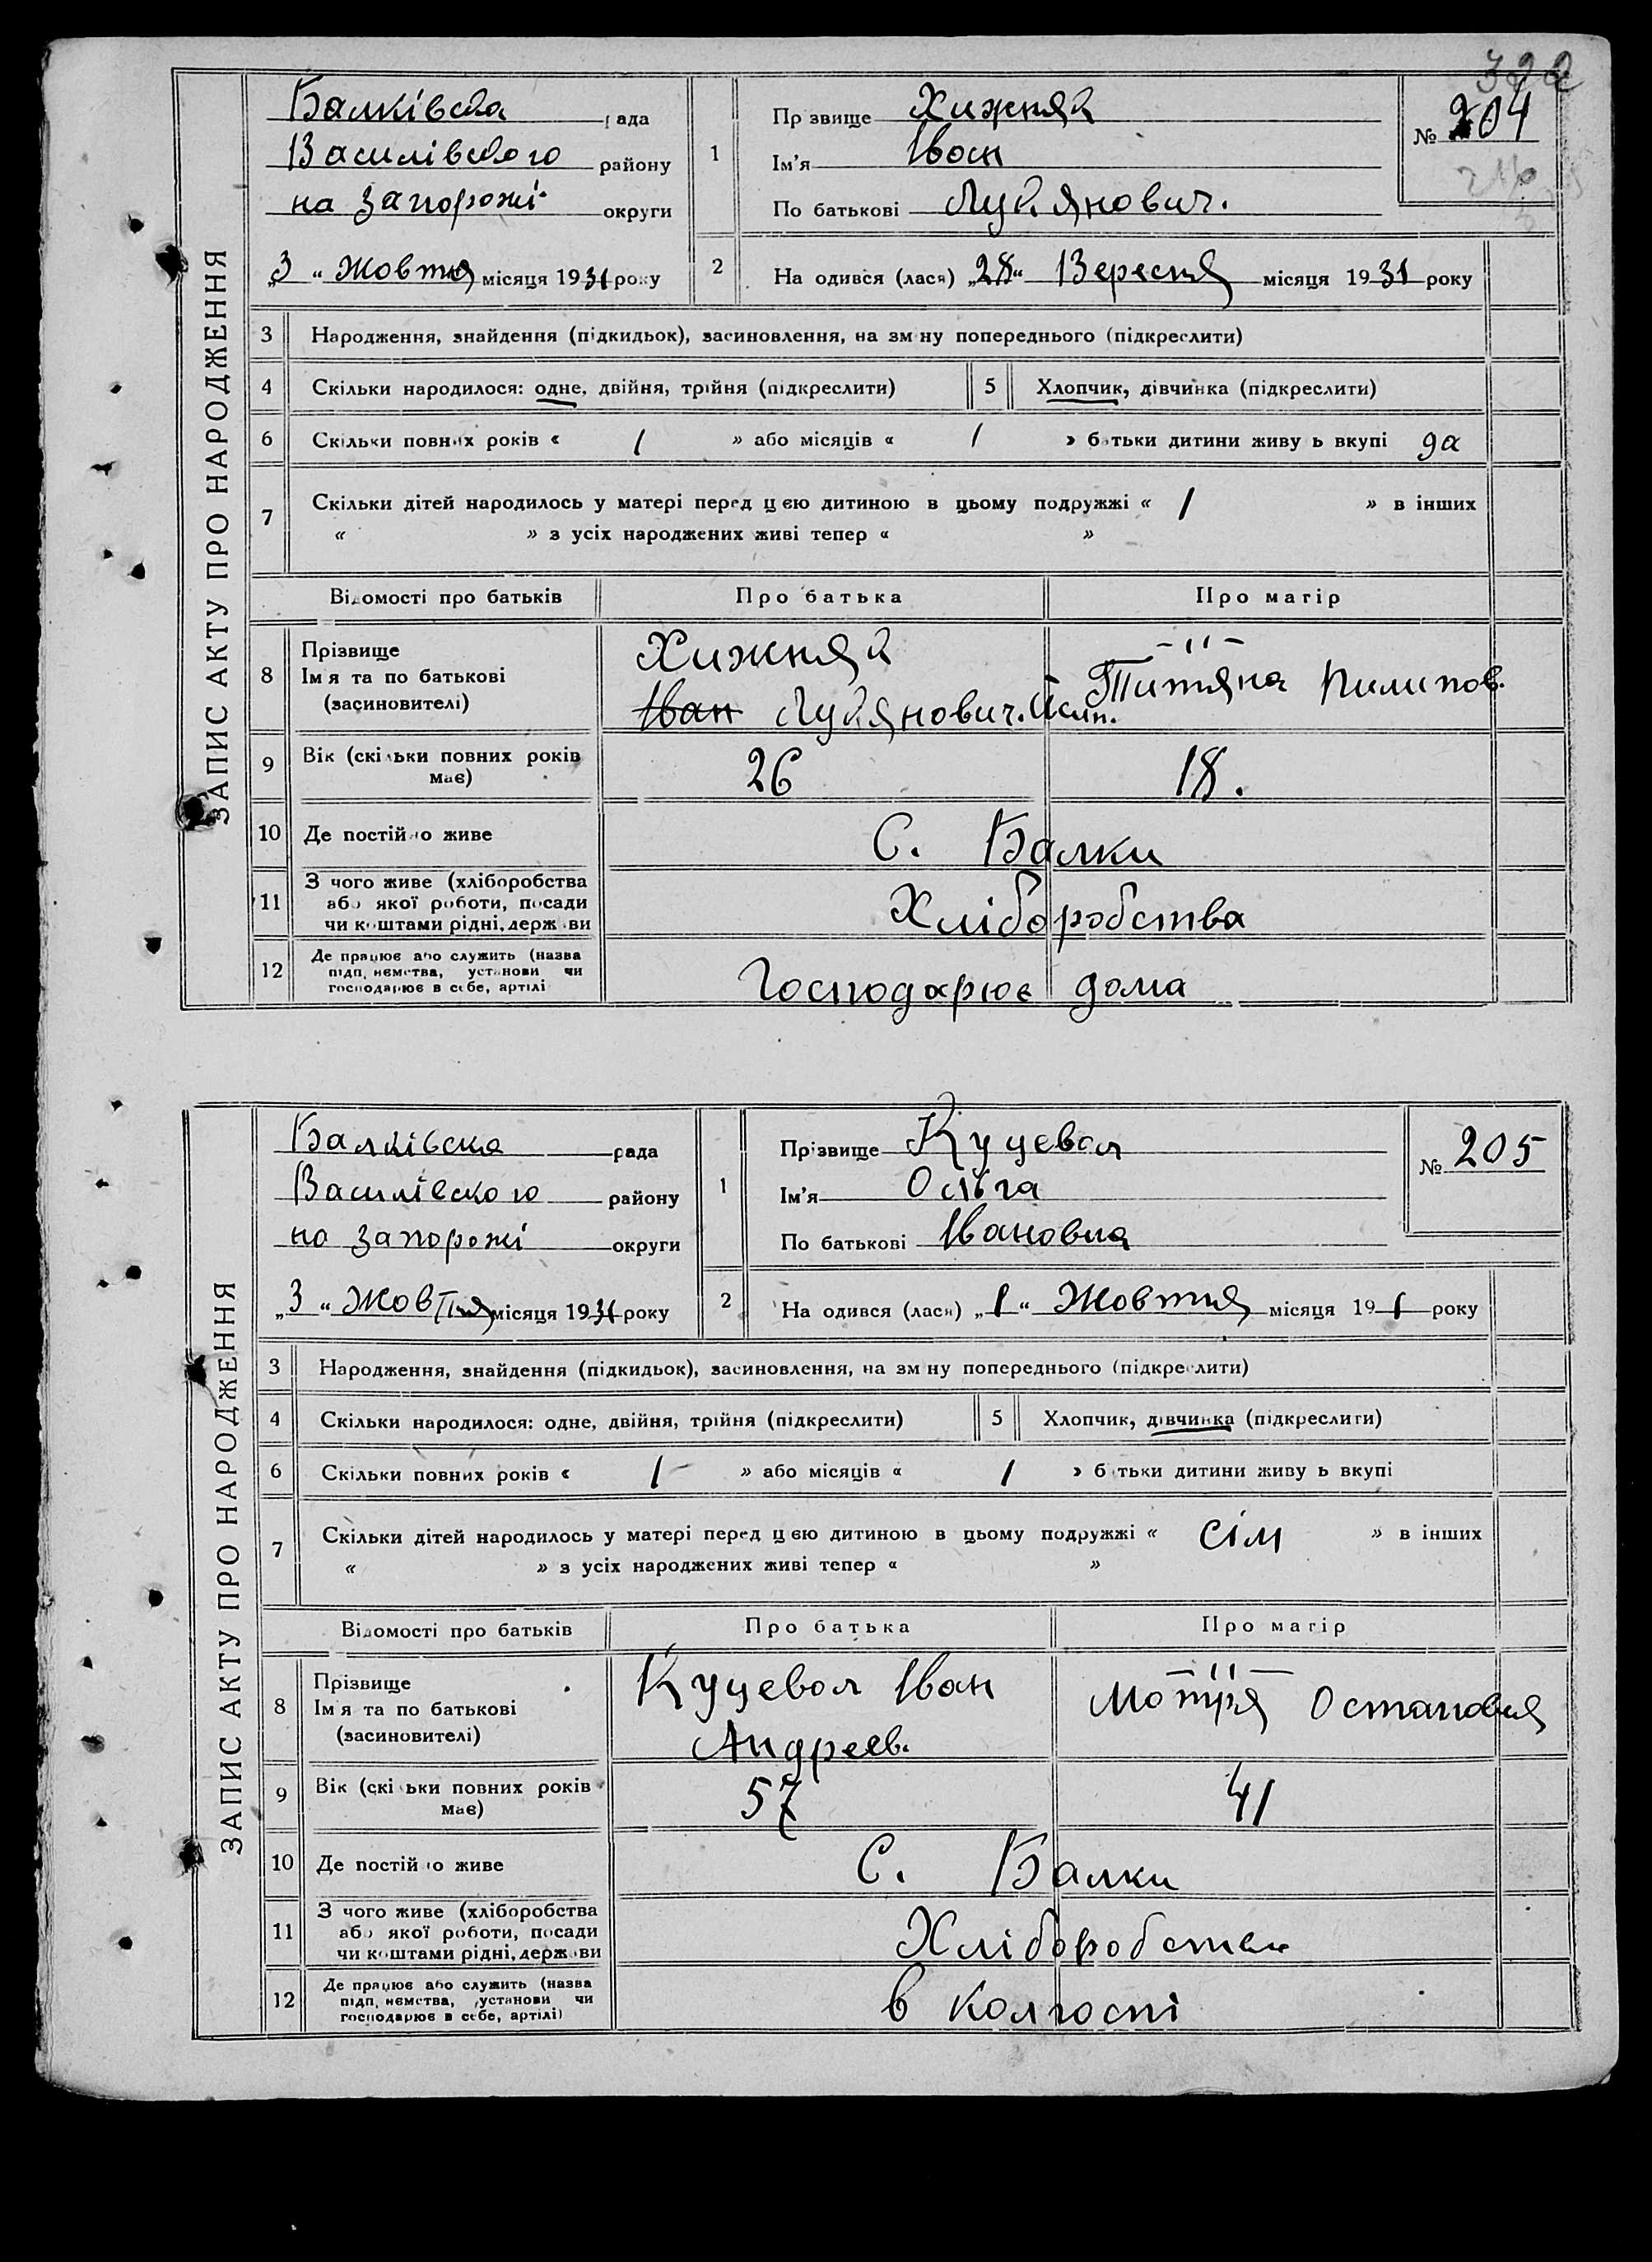 322
ЗАПИС АКТУ ПРО НАРОДЖЕННЯ
Балківська рада
Василівського району
на Запорожі округи
„3“ Жовтня місяця 1931 року
1
Прізвище Хижняк
Ім'я Іван
По батькові Лукянович.
№ 204
2
На одився (лася) „28“ Вересня місяця 1931 року
3 Народження, знайдення (підкидьок), засиновлення, на зм ну попереднього (підкреслити)
4 Скільки народилося: одне, двійня, трійня (підкреслити)
5 Хлопчик, дівчинка (підкреслити)
6 Скільки повних років « / » або місяців « / » батьки дитини живу ь вкупі да
7 Скільки дітей народилось у матері перед цєю дитиною в цьому подружжі « / » в інших
« » з усіх народжених живі тепер « »
Відомості про батьків Про батька Про матір
8 Прізвище
Ім'я та по батькові
(засиновителі)
Хижняк
Іван Лукянович.
-"-
Титяна Пилипов.
9 Вік (скільки повних років
має)
26
18.
10 Де постійно живе С. Балки
11 З чого живе (хліборобства
або якої роботи, посади
чи коштами рідні, держави
Хліборобства
12 Де працює або служить (назва
підп, немства, установи чи
господарює в себе, артілі
Господарює дома
ЗАПИС АКТУ ПРО НАРОДЖЕННЯ
Балківска рада
Василівского району
на Запорожі округи
„3“ Жовтня місяця 1931 року
1
Прізвище Куцевол
Ім'я Ольга
По батькові Івановна
№ 205
2
На одився (лася) „1“ Жовтня місяця 19 1 року
3 Народження, знайдення (підкидьок), засиновлення, на зм ну попереднього (підкреслити)
4 Скільки народилося: одне, двійня, трійня (підкреслити)
5 Хлопчик, дівчинка (підкреслити)
6 Скільки повних років « / » або місяців « / » б тьки дитини живу ь вкупі
7 Скільки дітей народилось у матері перед цєю дитиною в цьому подружжі « сім » в інших
« » з усіх народжених живі тепер « »
Відомості про батьків Про батька Про матір
8 Прізвище
Ім'я та по батькові
(засиновителі)
Куцевол Іван
Андреев.
-"-
Мотря Остаповна
9 Вік (скі ьки повних років
має)
57
41
10 Де постій о живе С. Балки
11 З чого живе (хліборобства
або якої роботи, посади
чи коштами рідні, держави
Хліборобства
12 Де працює або служить (назва
підп, немства, установи чи
господарює в себе, артілі)
в колгоспі